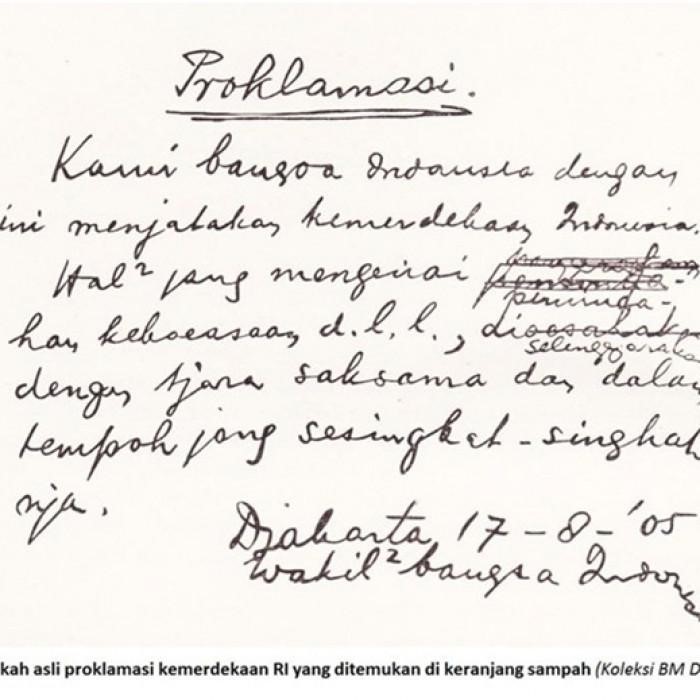 Proklamasi.
Kami bangsa Indonesia dengan
ini menjatakan kemerdekaan Indonesia.
Hal² jang mengenai
peminda-
han keboeasaan d.l.l., dioesahakan
selenggarakan
dengan tjara saksama dan dalam
tempoh jang sesingkat-singkat
nja.
Djakarta 17-8-'05
Wakil² bangsa Indon
kah asli proklamasi kemerdekaan RI yang ditemukan di keranjang sampah (Koleksi BM D